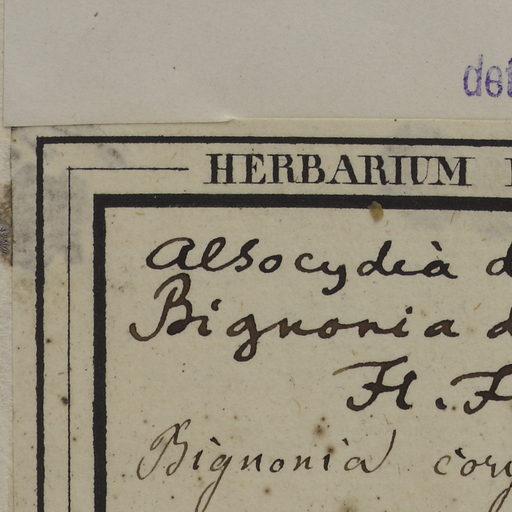 det
HERBARIUM
Alsocydia d
Bignonia d
Fl. F
Bignonia cory